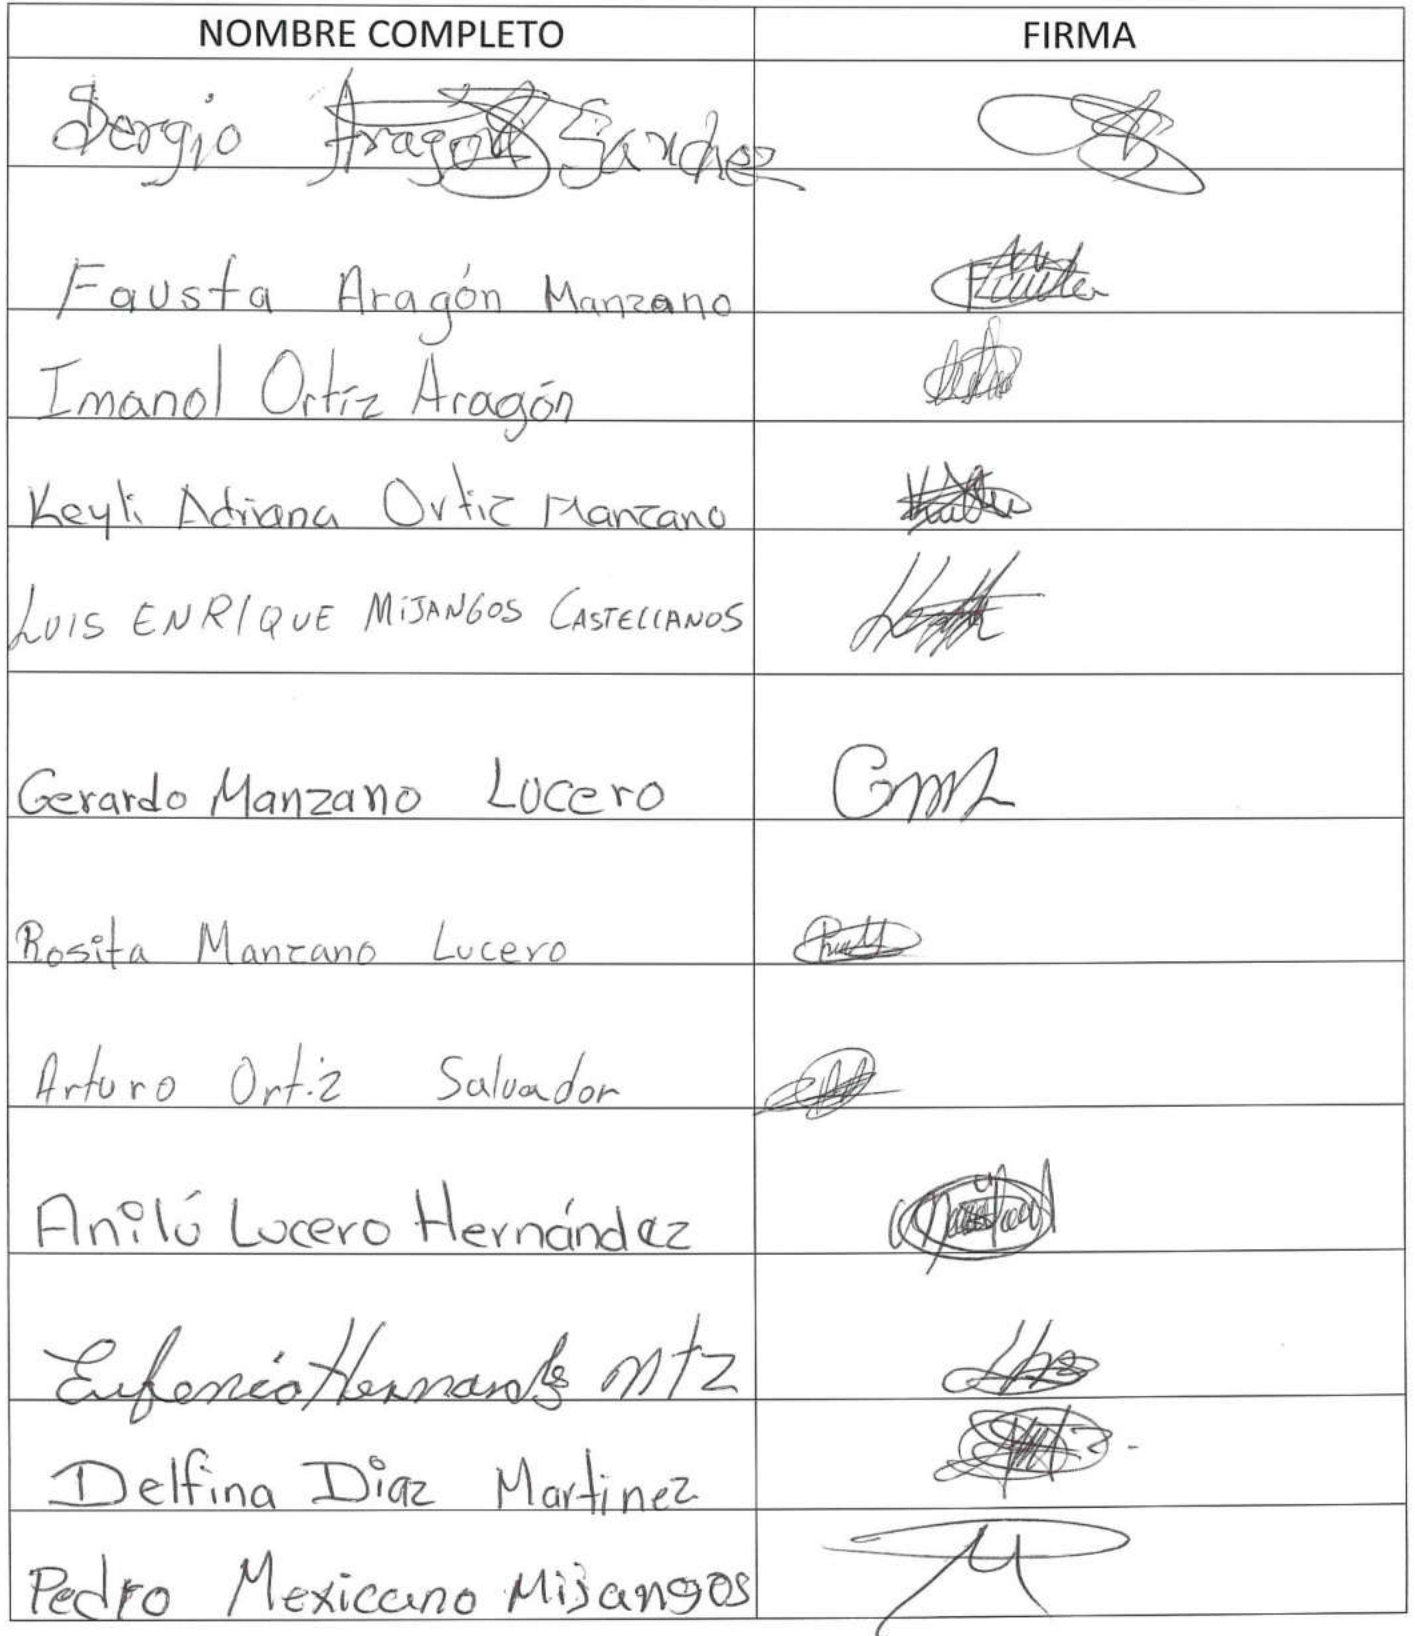 NOMBRE COMPLETO FIRMA
Sergio Aragon Sanchez
Fausta Aragón Manzano
Imanol Ortíz Aragón
Keyli Adriana Ortiz Manzano
LUIS ENRIQUE MIJANGOS CASTELLANOS
Gerardo Manzano Lucero
Rosita Manzano Lucero
Arturo Ortiz Salvador
Anilú Lucero Hernández
Hernandz Mtz
Delfina Diaz Martinez
Pedro Mexicano Mijangos